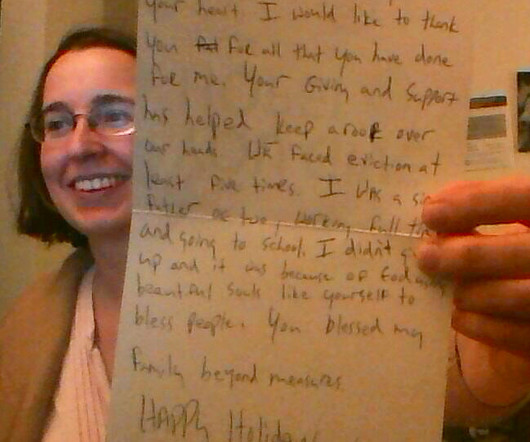 your heart. I would like to thank
you for all that you have done
for me. Your Giving and Support
has helped keep a roof over
our heads. We faced eviction at
least five times. I was a
father of two, working full
and going to school. I didn't
up and it was because of God
beautiful souls like yourself to
bless people. You blessed my
family beyond measures
HAPPY Holidays